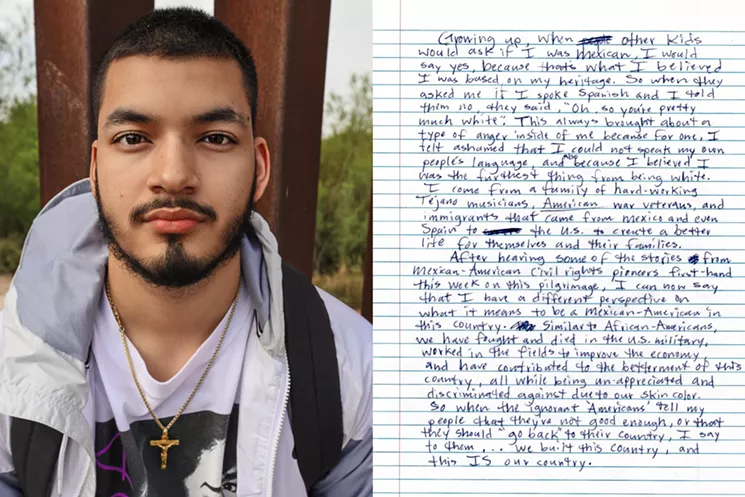 Growing up, when other kids
would ask if I was mexican, I would
say yes, because that's what I believed
I was based on my heritage. So when they
asked me if I spoke Spanish and I told
them no, they said, "Oh, so you're pretty
much white". This always brought about a
type of anger inside of me because for one, I
felt ashamed that I could not speak my own
people's language, and because I believed I
was the furthest thing from being white.
I come from a family of hard-working
Tejano musicians, American war veterans, and
immigrants that came from mexico and even
Spain to the U.S. to create a better
life for themselves and their families.
After hearing some of the stories from
Mexican-American civil rights pioneers first-hand
this week on this pilgrimage, I can now say
that I have a different perspective on
what it means to be a Mexican-American in
this country. Similar to African-Americans,
we have fought and died in the U.S. military,
worked in the fields to improve the economy
and have contributed to the betterment of this
country, all while being un-appreciated and
discriminated against due to our skin color.
So when the ignorant "Americans" tell my
people that they're not good enough, or that
they should "go back" to their country, I say
to them... we built this country, and
this IS our country.